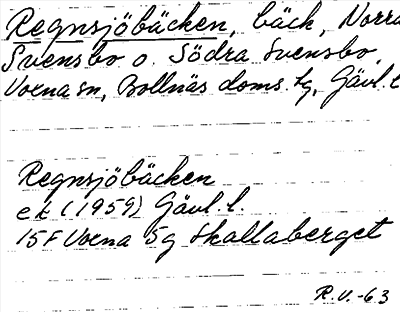 Regnsjöbäcken, bäck, Norra
Svensbo o. Södra Svensbo,
Voxna sn, Bollnäs doms. tg, Gävl. l
Regnsjöbäcken
ek (1959) Gävl l.
15F Voxna 5g Skallaberget
R.V. -63